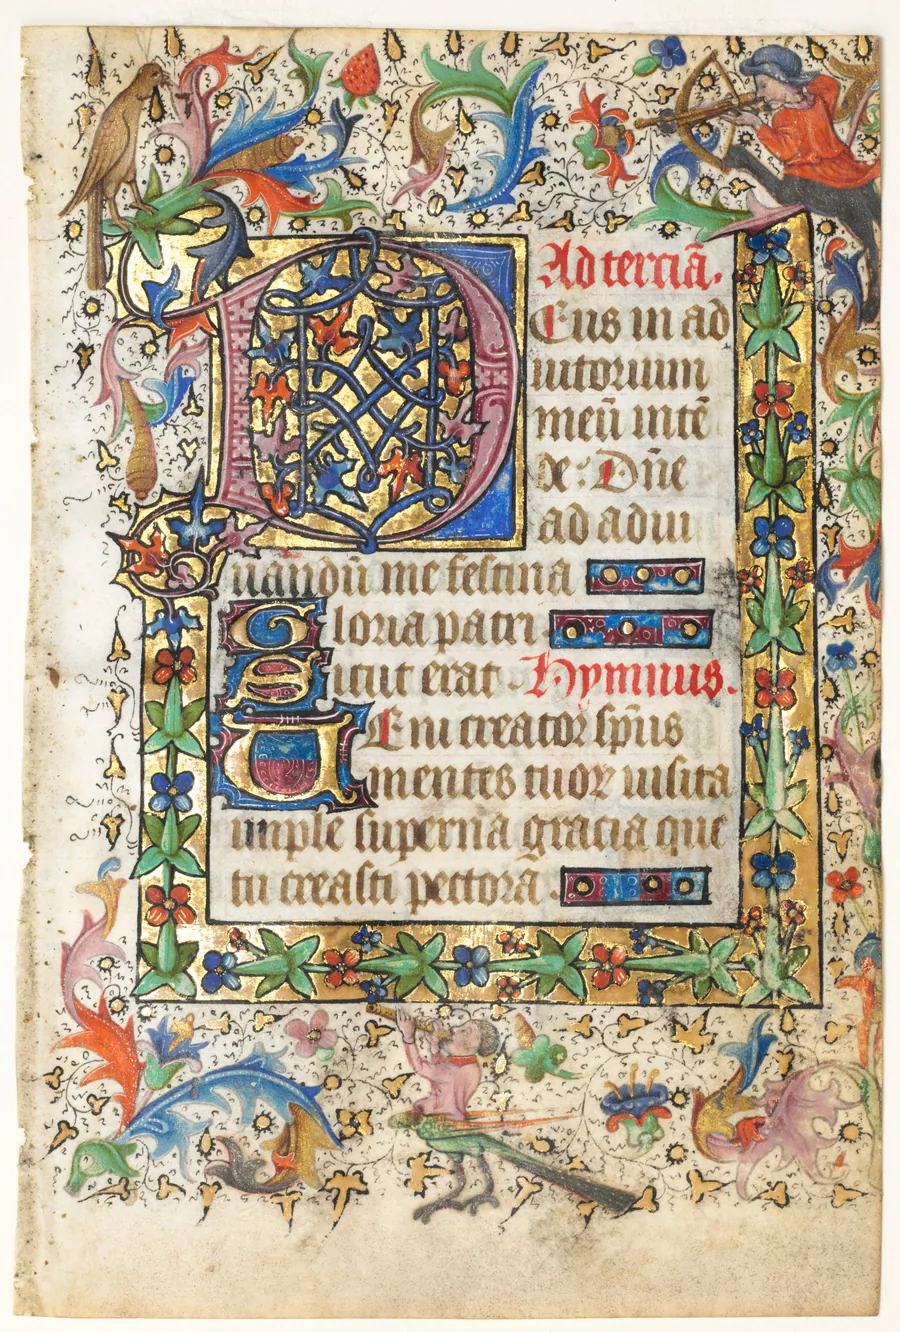 Ad terciā.
DEus in ad
iutorium
meū intē
de: Dn̄e
ad adiu
uandū me festina
Gloria patri.
Sicut erat. Hymnus.
UEni creator sp̄us
mentes tuoꝝ uisita
imple superna gracia que
tu creasti pectora